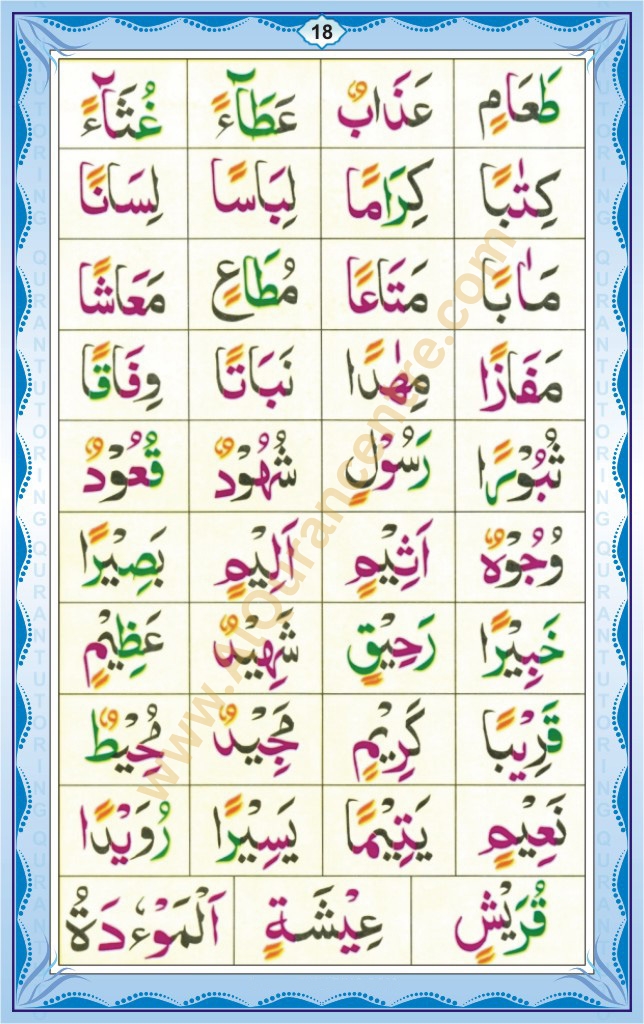 18
طَعَامٍ عَذَابٌ عَطَآءً غُثَآءً
كِتٰبًا كِرَامًا لِبَاسًا لِسَانًا
مَاٰبًا مَتَاعًا مُطَاعٍ مَعَاشًا
مَفَازًا مِهٰدًا نَبَاتًا وِفَاقًا
ثُبُوْرًا رَسُوْلٍ شُهُوْدٌ قُعُوْدٌ
وُجُوْهٌ اَثِيْمٍ اَلِيْمٍ بَصِيْرًا
خَبِيْرًا رَحِيْقٍ شَهِيْدٌ عَظِيْمٍ
قَرِيْبًا كَرِيْمٍ مَجِيْدٌ مُحِيْطٌ
نَعِيْمٍ يَتِيْمًا يَسِيْرًا رُوَيْدًا
قُرَيْشٍ عِيْشَةٍ اَلْمَوْءٗدَةُ
www.AlQurancentre.com
QURAN TUTORING QURAN TUTORING QURAN TUTORING
QURAN TUTORING QURAN TUTORING QURAN TUTORING